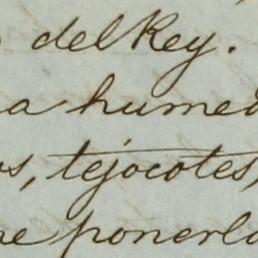 del Rey.
a humed
s, tejocotes,
ponerlo